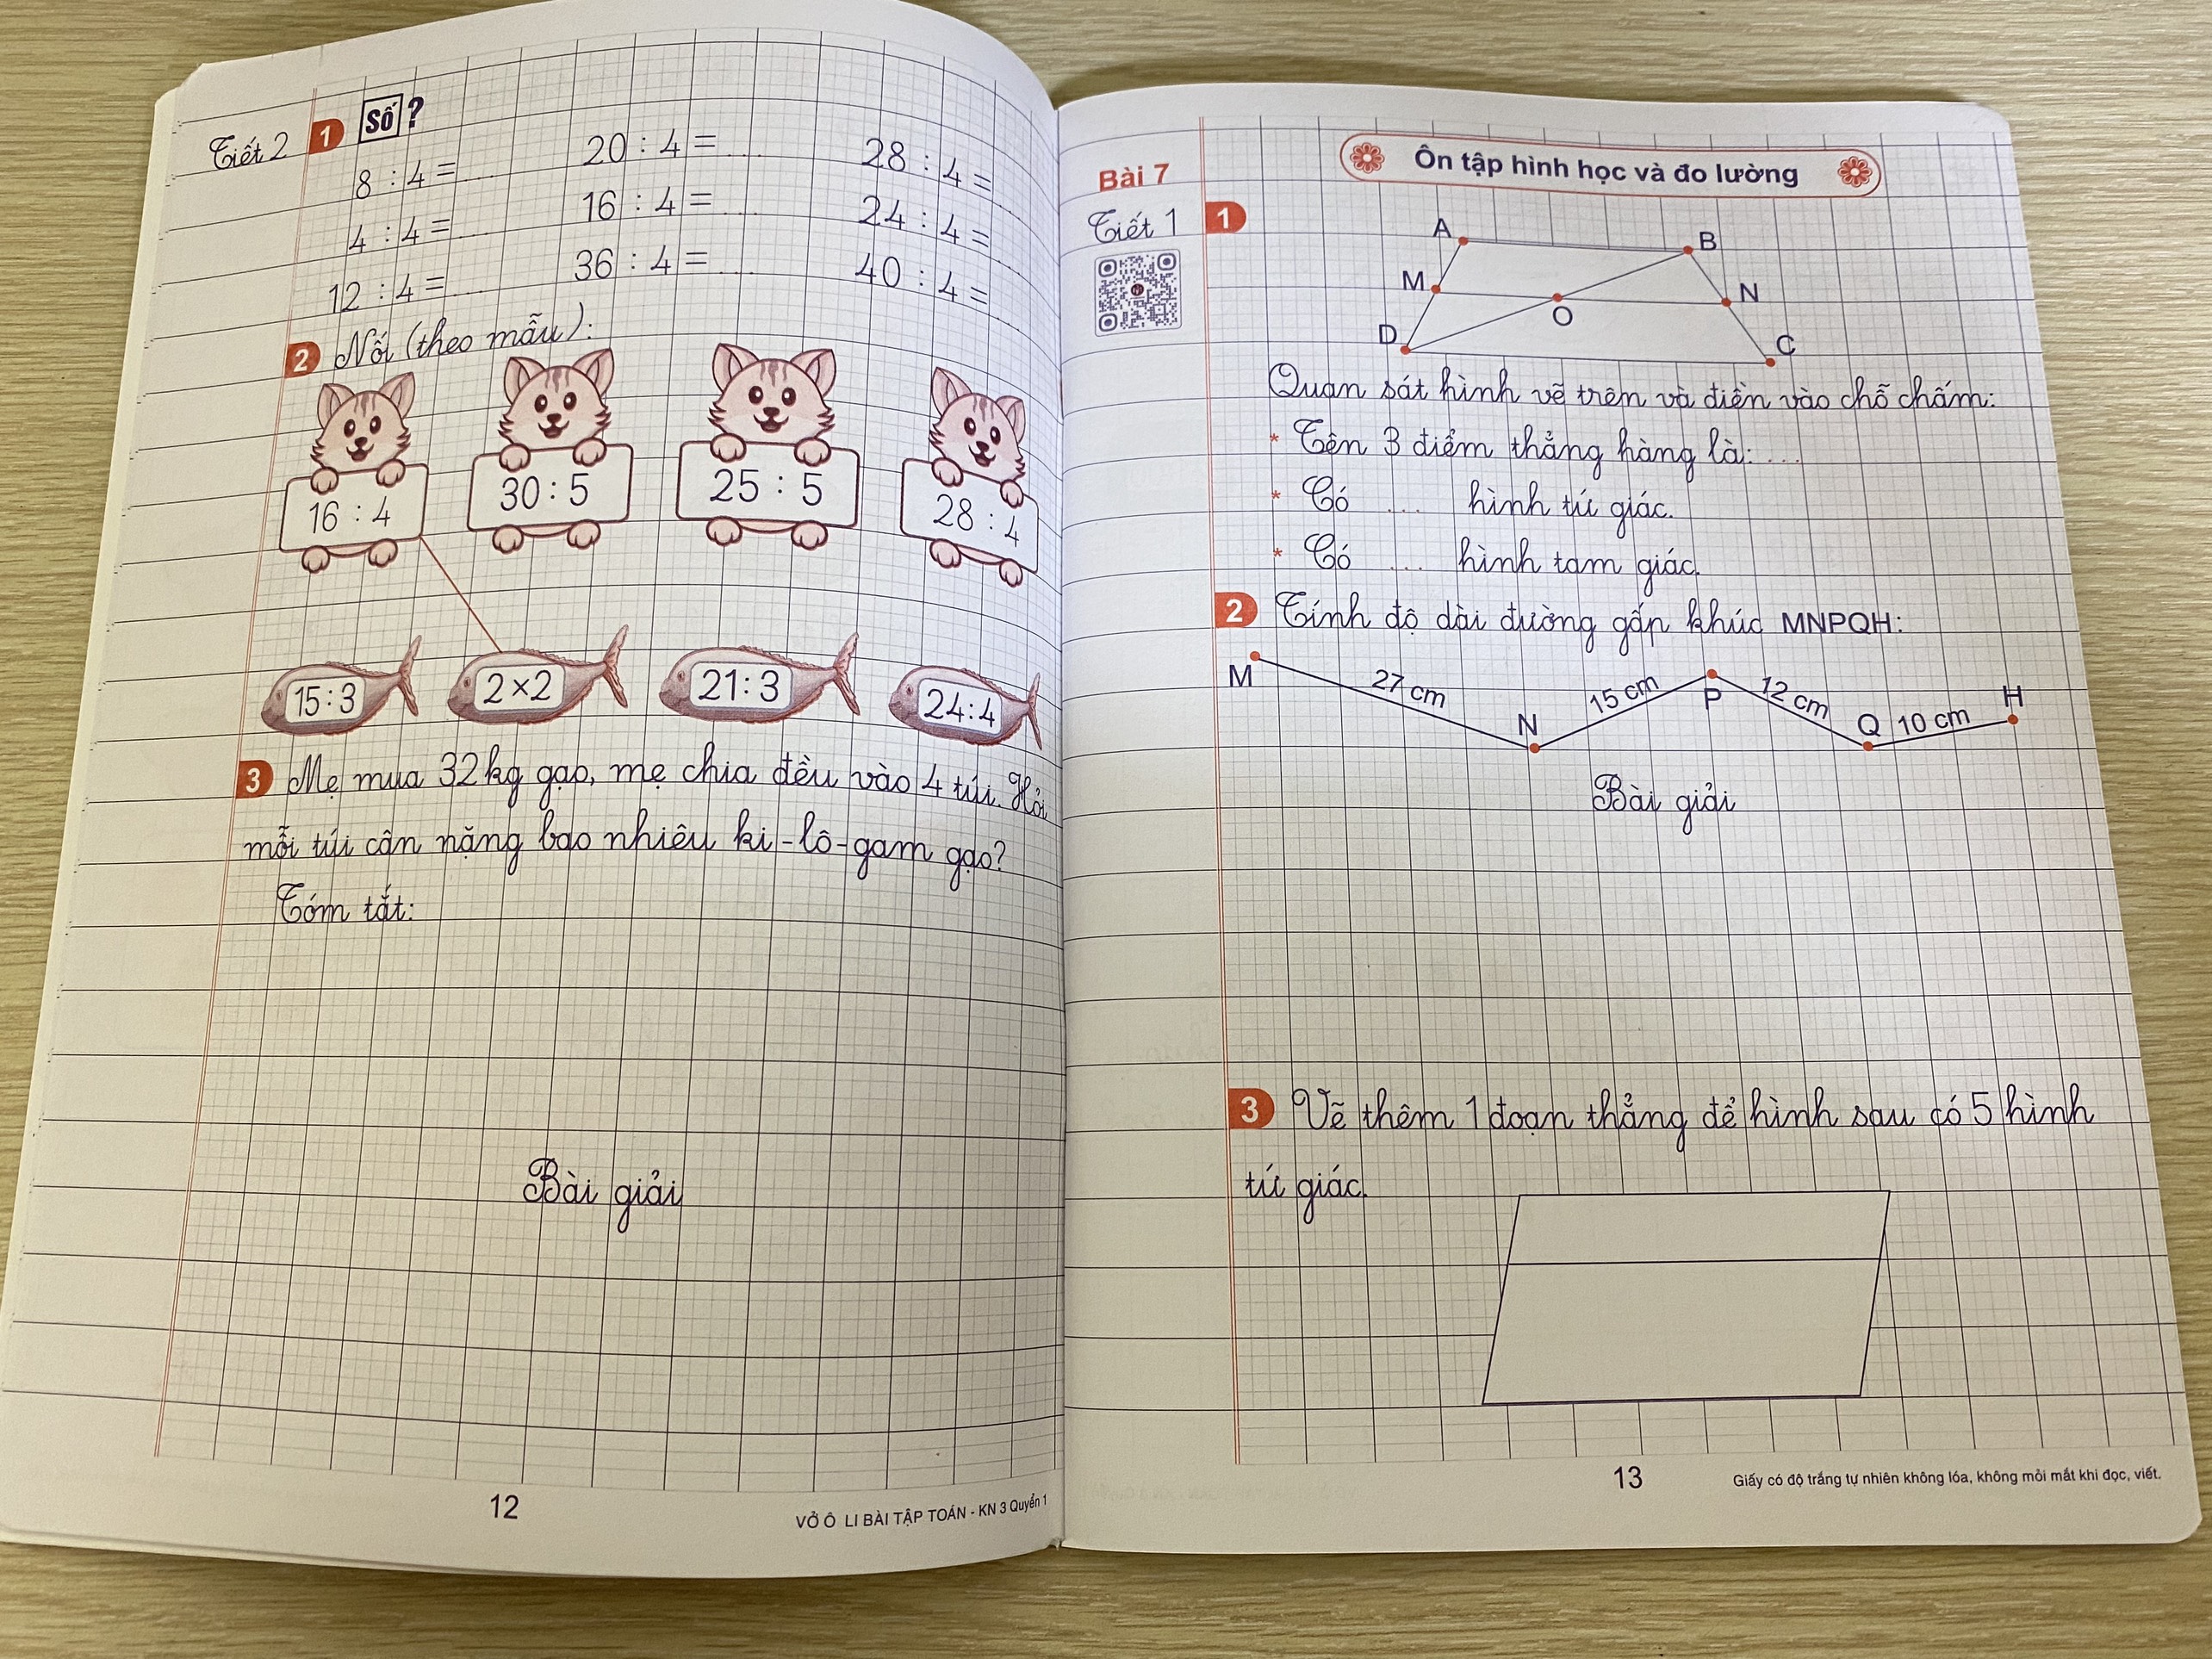 Tiết 2 1 Số ?
8 : 4 = ... 20 : 4 = ... 28 : 4 =
4 : 4 = ... 16 : 4 = ... 24 : 4 =
12 : 4 = ... 36 : 4 = ... 40 : 4 =
2 Nối (theo mẫu):
16 : 4 30 : 5 25 : 5 28 : 4
15 : 3 2 × 2 21 : 3 24 : 4
3 Mẹ mua 32kg gạo, mẹ chia đều vào 4 túi. Hỏi
mỗi túi cân nặng bao nhiêu ki-lô-gam gạo?
Tóm tắt:
Bài giải
12
VỞ Ô LI BÀI TẬP TOÁN - KN 3 Quyển 1
Bài 7 Ôn tập hình học và đo lường
Tiết 1 1
A B
M N
O
D C
Quan sát hình vẽ trên và điền vào chỗ chấm:
* Tên 3 điểm thẳng hàng là: ...
* Có ... hình tứ giác.
* Có ... hình tam giác.
2 Tính độ dài đường gấp khúc MNPQH:
M 27 cm N 15 cm P 12 cm Q 10 cm H
Bài giải
3 Vẽ thêm 1 đoạn thẳng để hình sau có 5 hình
tứ giác.
13
Giấy có độ trắng tự nhiên không lóa, không mỏi mắt khi đọc, viết.